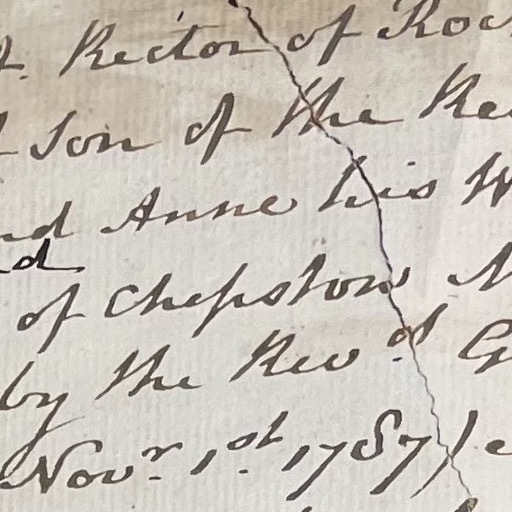 Rector of
Son of the
Anne his
of Chepstow
by the Rev.d G
Nov.r 1st. 1787)